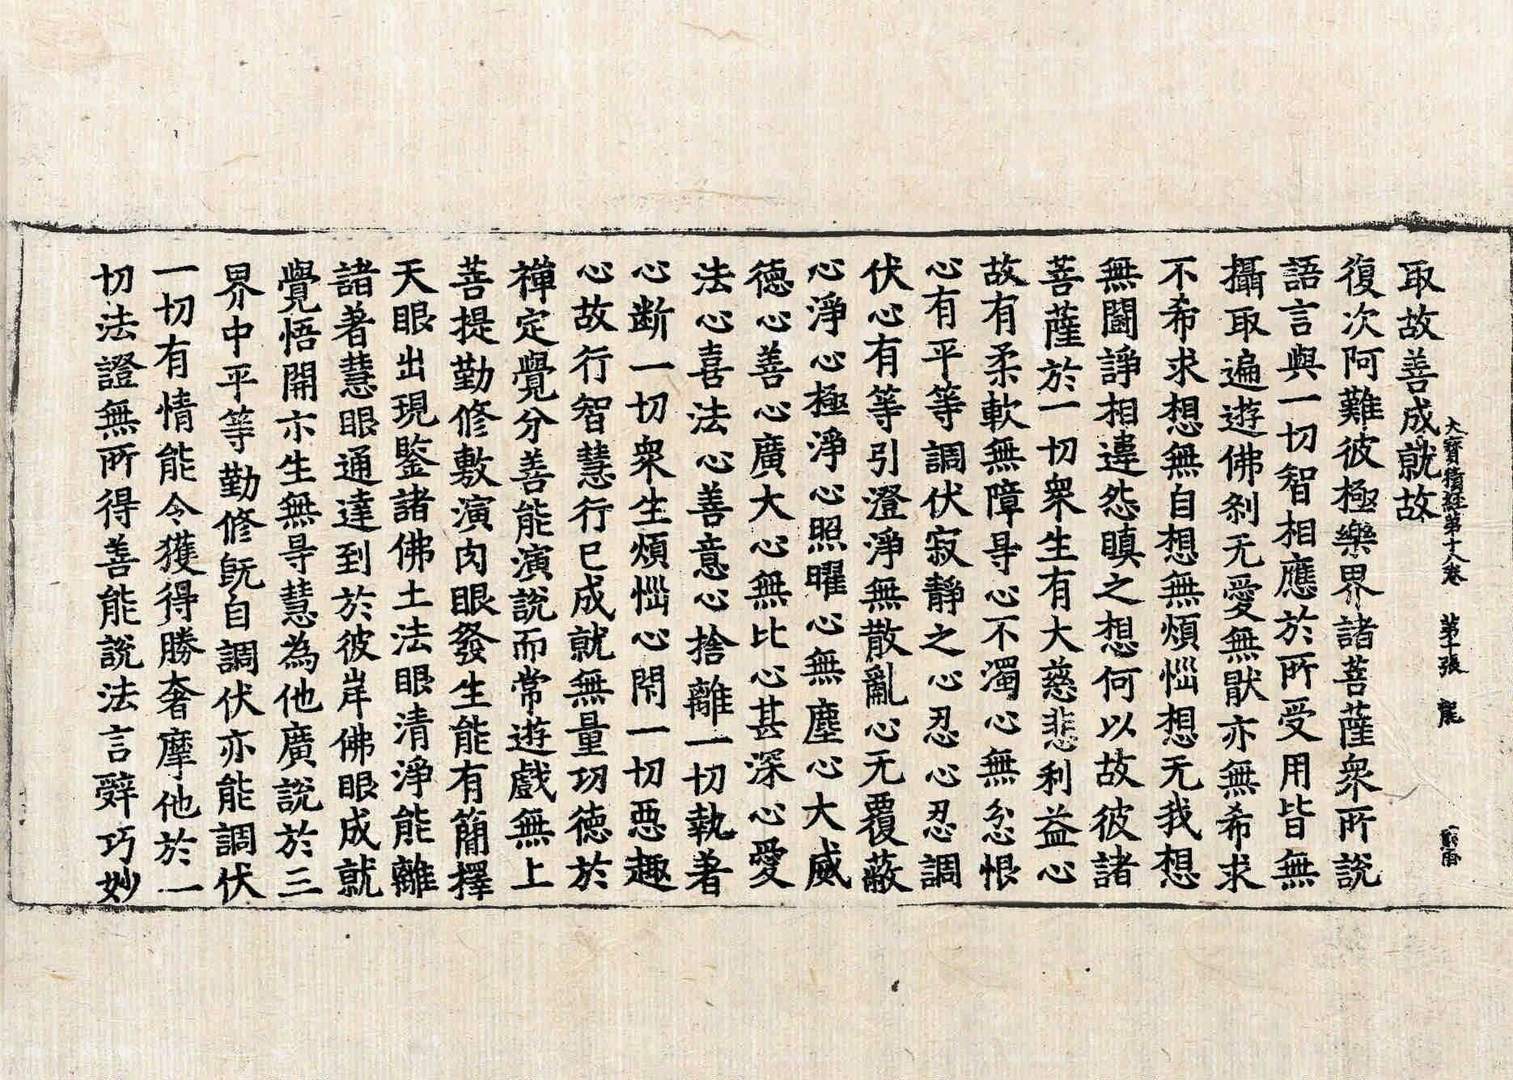 大寶積經第十八卷　第十張　龍
取故善成就故
復次阿難彼極樂界諸菩薩衆所說
語言與一切智相應於所受用皆無
攝取遍遊佛刹无愛無猒亦無希求
不希求想無自想無煩惱想无我想
無鬪諍相違怨瞋之想何以故彼諸
菩薩於一切衆生有大慈悲利益心
故有柔軟無障㝵心不濁心無忿恨
心有平等調伏寂靜之心忍心忍調
伏心有等引澄淨無散亂心无覆蔽
心淨心極淨心照曜心無塵心大威
德心善心廣大心無比心甚深心愛
法心喜法心善意心捨離一切執著
心斷一切衆生煩惱心閇一切惡趣
心故行智慧行已成就無量功德於
禪定覺分善能演說而常遊戲無上
菩提勤修敷演肉眼發生能有簡擇
天眼出現鑒諸佛土法眼清淨能離
諸著慧眼通達到於彼岸佛眼成就
覺悟開示生無㝵慧為他廣說於三
界中平等勤修旣自調伏亦能調伏
一切有情能令獲得勝奢摩他於一
切法證無所得善能說法言辭巧妙